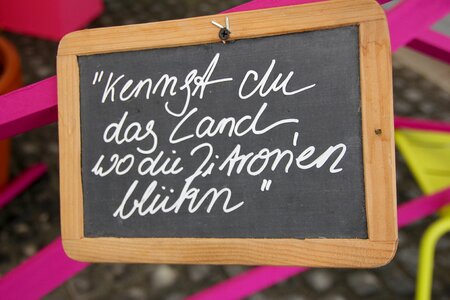 "Kennst du
das Land
wo die Zitronen
blühn"